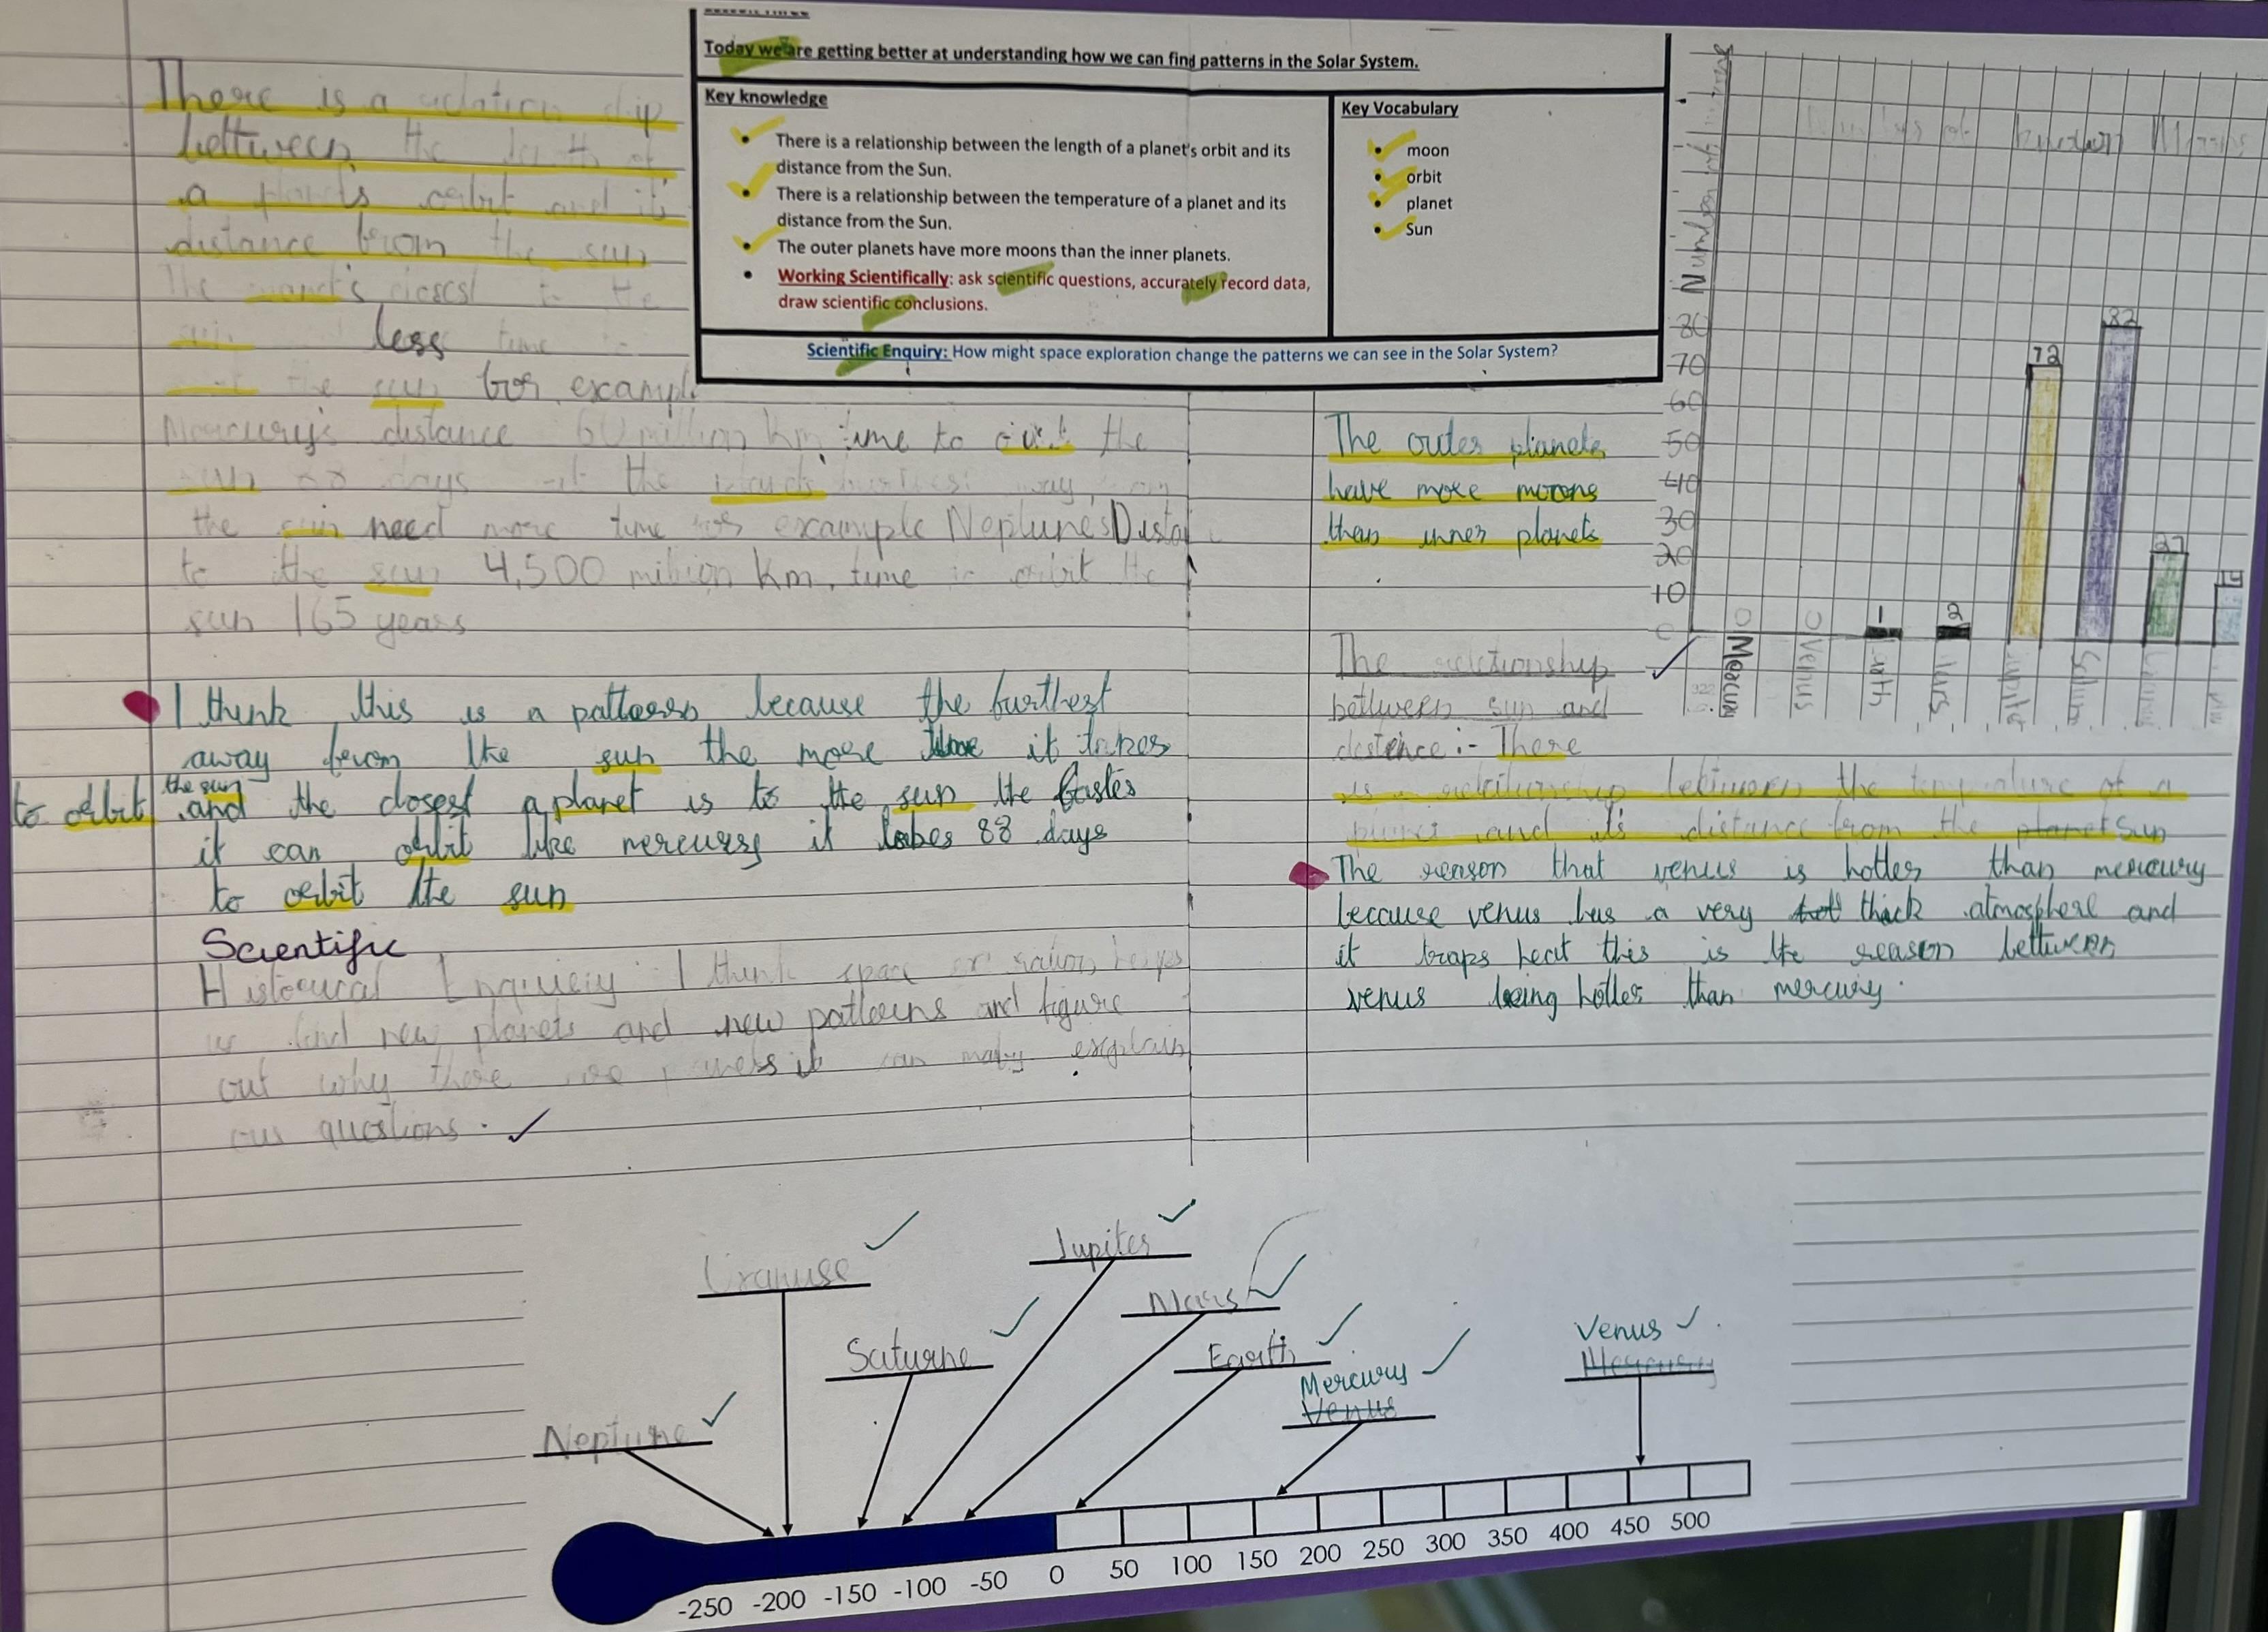 Today we are getting better at understanding how we can find patterns in the Solar System.
Key knowledge
• There is a relationship between the length of a planet's orbit and its
distance from the Sun.
• There is a relationship between the temperature of a planet and its
distance from the Sun.
• The outer planets have more moons than the inner planets.
• Working Scientifically: ask scientific questions, accurately record data,
draw scientific conclusions.
Key Vocabulary
• moon
• orbit
• planet
• Sun
Scientific Enquiry: How might space exploration change the patterns we can see in the Solar System?
There is a
bettween the of
a orbit and it's
distance from the sun
The closest to the
less time
the sun for example
Mercury's distance 60 million km, time to the
sun days the way
the sun need more time for example Neptune's Dista
to the sun 4,500 million Km, time to orbit the
sun 165 years
I think this is a pattern because the furthest
away from the sun the more it takes
to orbit the sun and the closest a planet is to the sun the fastes
it can orbit like mercury it takes 88 days
to orbit the sun
Scientific
Historical I think space helps
us find new planets and new patterns and figure
out why there it can explain
our questions.
The outer planets
have more moons
than inner planets
Number of
80
70
60
50
40
30
20
10
0
0
0
1
2
72
82
27
Mercury
Venus
Saturn
The relationship
bettween sun and
distence :- There
is a relationship between the temperature of a
planet and its distance from the planet sun
The reason that venus is hotter than mercury
because venus has a very hot thick atmosphere and
it traps heat this is the reason bettween
venus being hotter than mercury.
Jupiter
Uranuse
Mars
Venus
Mercury
Saturne
Earth
Mercury
Venus
Neptune
-250 -200 -150 -100 -50 0 50 100 150 200 250 300 350 400 450 500